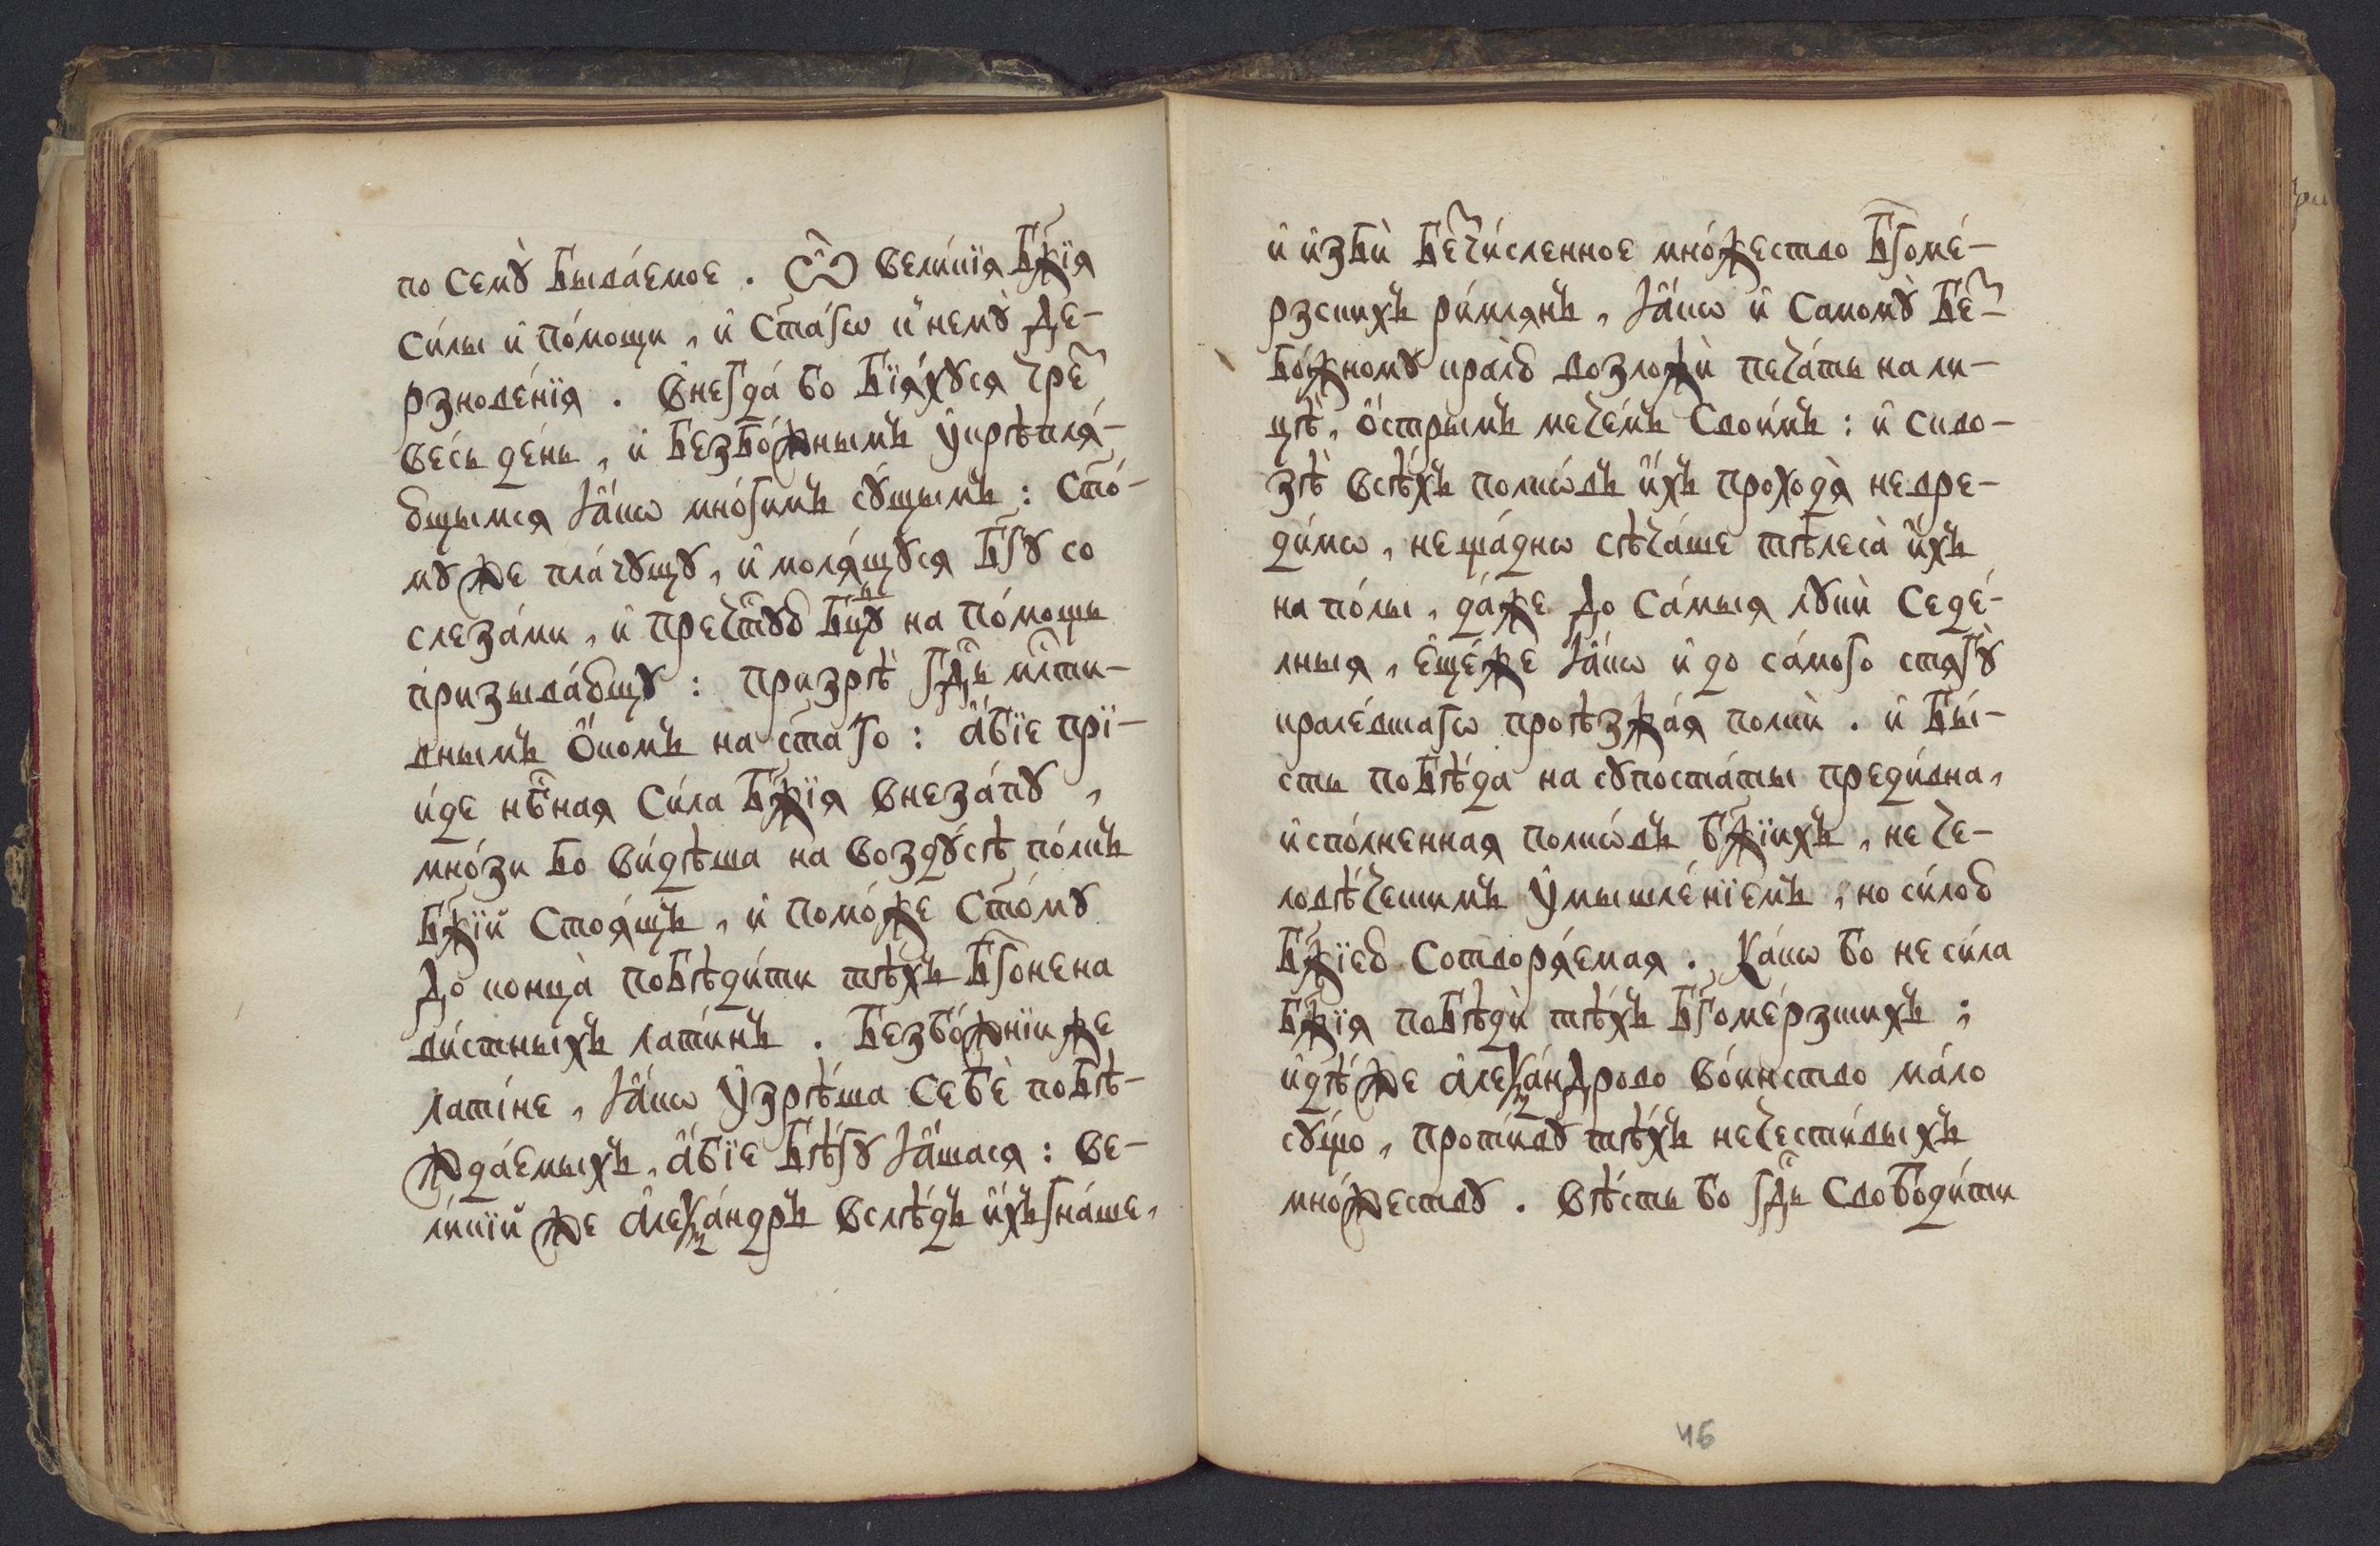 по семꙋ̀ быва́емое . Ѽ вели́кїѧ бж҃їѧ
си́лы и҆ по́мощи , и҆ ст҃а́гѡ к̾немꙋ̀ де-
рзнове́нїѧ . внегда́ бо бїѧ́хꙋсѧ чре́з
ве́сь де́нь , и҆ безбо́жнымъ ᲂу҆крѣплѧ́-
ющымсѧ ꙗ҆́кѡ мно́гимъ сꙋ́щымъ : ст҃о́-
мꙋ же пла́чꙋщꙋ , и҆ молѧ́щꙋсѧ бг҃ꙋ со
слеза́ми , и҆ пречⷭ҇тꙋю бц҃ꙋ на по́мощь
призыва́ющꙋ : призрѣ̀ гдⷭ҇ь млⷭ҇ти-
внымъ ѻ҆́комъ на ст҃а́го : а҆́бїе прї-
и́де нбⷭ҇наѧ си́ла бж҃їѧ внеза́пꙋ ,
мно́зи бо ви́дѣша на воздꙋ́сѣ по́лкъ
бж҃їй стоѧ́щъ , и҆ помо́же ст҃о́мꙋ
до конца̀ побѣди́ти тѣ́хъ бг҃онена
ви́стныхъ лати́нъ . безбо́жнїи же
лати́не , ꙗ҆́кѡ ᲂу҆зрѣ́ша себѐ побѣ-
жда́емыхъ , а҆́бїе бѣ́гꙋ ꙗ҆́шасѧ : ве-
ли́кїй же а҆леѯа́ндръ вслѣ́дъ и҆́хъ гна́ше ,
и҆ и҆збѝ беⷥчи́сленное мно́жество бг҃оме́-
рзскихъ ри́млѧнъ , ꙗ҆́кѡ и҆ самомꙋ̀ беⷥ-
бо́жномꙋ кралю̀ возложѝ печа́ть на ли-
цѣ̀ , ѻ҆́стрымъ мече́мъ свои́мъ : и҆ скво-
зѣ̀ всѣ́хъ полкѡ́въ и҆́хъ проходѧ̀ невре-
ди́мѡ , неща́днѡ сѣча́ше тѣлеса̀ и҆́хъ
на по́лы , да́же до са́мыѧ лꙋкѝ седе́-
лныѧ , є҆ще́же ꙗ҆́кѡ и҆ до са́мого стѧ́гꙋ
крале́вшагѡ проѣзжа́ѧ полкѝ . и҆ бы́-
сть побѣ́да на сꙋпоста́ты преди́вна ,
и҆спо́лненнаѧ полкѡ́въ бж҃їихъ , не че-
ловѣ́ческимъ ᲂу҆мышле́нїемъ , но си́лою
бж҃їею сотворѧ́емаѧ . Ка́кѡ бо не си́ла
бж҃їѧ побѣдѝ тѣ́хъ бг҃оме́рзкихъ ;
и҆дѣ́же а҆леѯа́ндрово во́инство ма́ло
сꙋ́що , проти́вꙋ тѣ́хъ нечести́выхъ
мно́жествꙋ . вѣ́сть бо гдⷭ҇ь свободи́ти
46